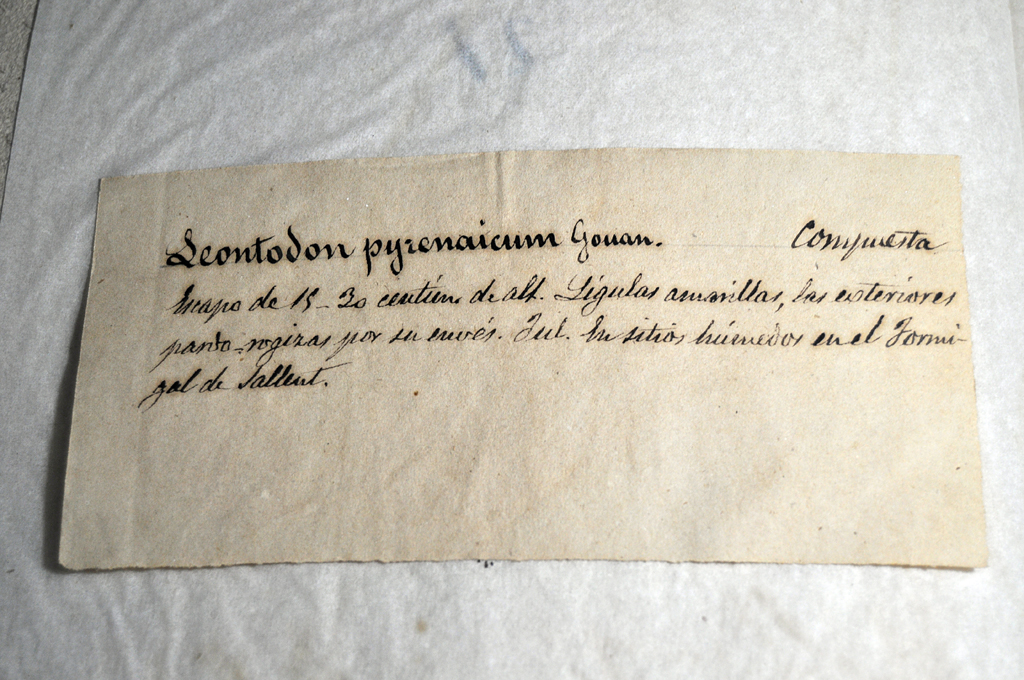 Leontodon pyrenaicum Gouan. Compuesta
Escapo de 15-30 centím. de alt. Lígulas amarillas, las exteriores
pardo-rogizas por su envés. Jul. En sitios húmedos en el Formi-
gal de Sallent.